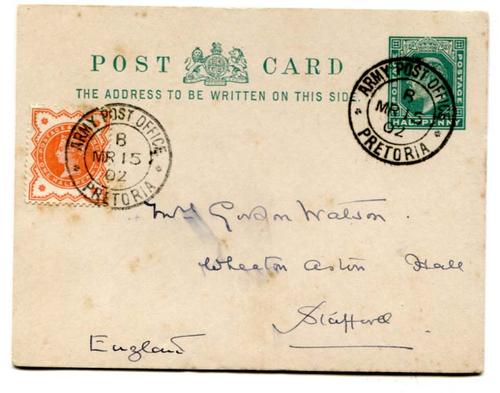 POST CARD
THE ADDRESS TO BE WRITTEN ON THIS SIDE
POSTAGE
HALFPENNY
ARMY POST OFFICE
B
MR 15
02
PRETORIA
ARMY POST OFFICE
B
MR 15
02
PRETORIA
Gordon Watson.
Wheaton Aston Hall
Stafford
England